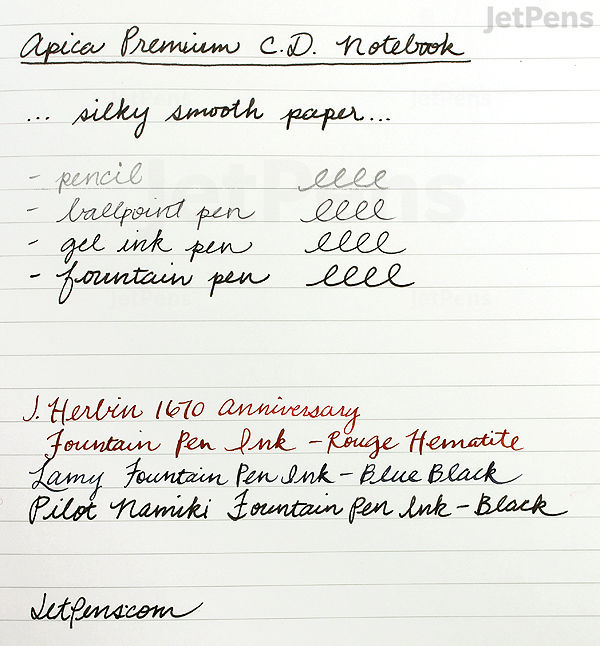 JetPens
Apica Premium C.D. Notebook
... silky smooth paper...
- pencil eeee
- ballpoint pen eeee
- gel ink pen eeee
- fountain pen eeee
J. Herbin 1670 Anniversary
Fountain Pen Ink - Rouge Hematite
Lamy Fountain Pen Ink - Blue Black
Pilot Namiki Fountain Pen Ink - Black
JetPens.com